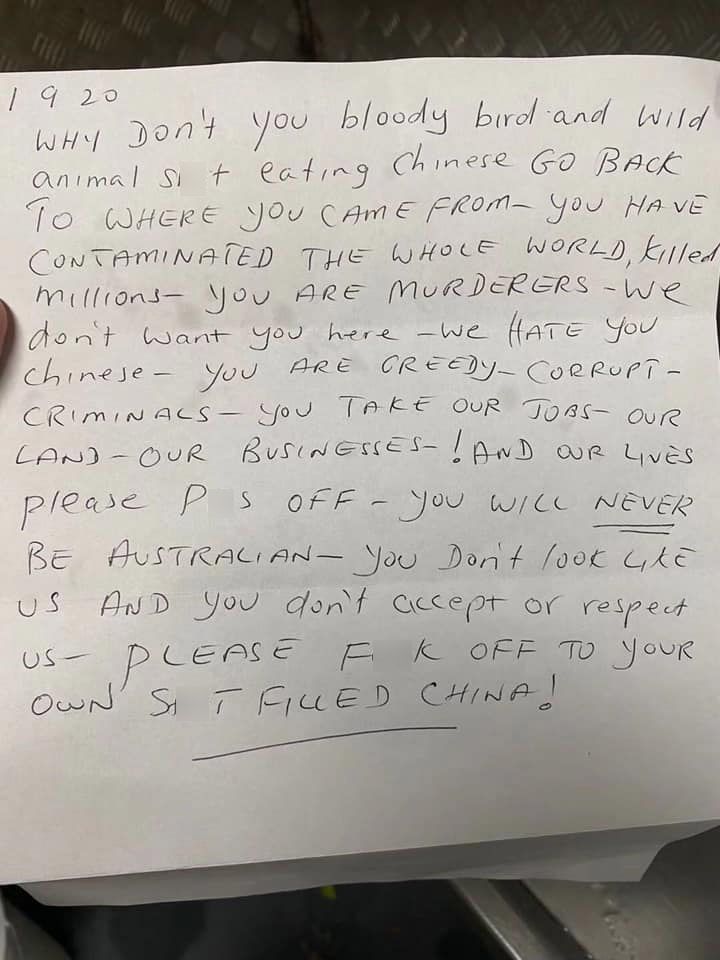 1 9 20
WHY DON't you bloody bird and wild
animal S t eating Chinese GO BACK
TO WHERE YOU CAME FROM- YOU HAVE
CONTAMINATED THE WHOLE WORLD, killed
millions- YOU ARE MURDERERS - WE
don't want you here - WE HATE YOU
Chinese - YOU ARE GREEDY- CORRUPT-
CRIMINALS- YOU TAKE OUR JOBS- OUR
LAND - OUR BUSINESSES- ! AND OUR LIVES
please P S OFF - YOU WILL NEVER
BE AUSTRALIAN- YOU Don't look LIKE
US AND YOU don't accept or respect
US- PLEASE F K OFF TO YOUR
OWN S T FILLED CHINA!